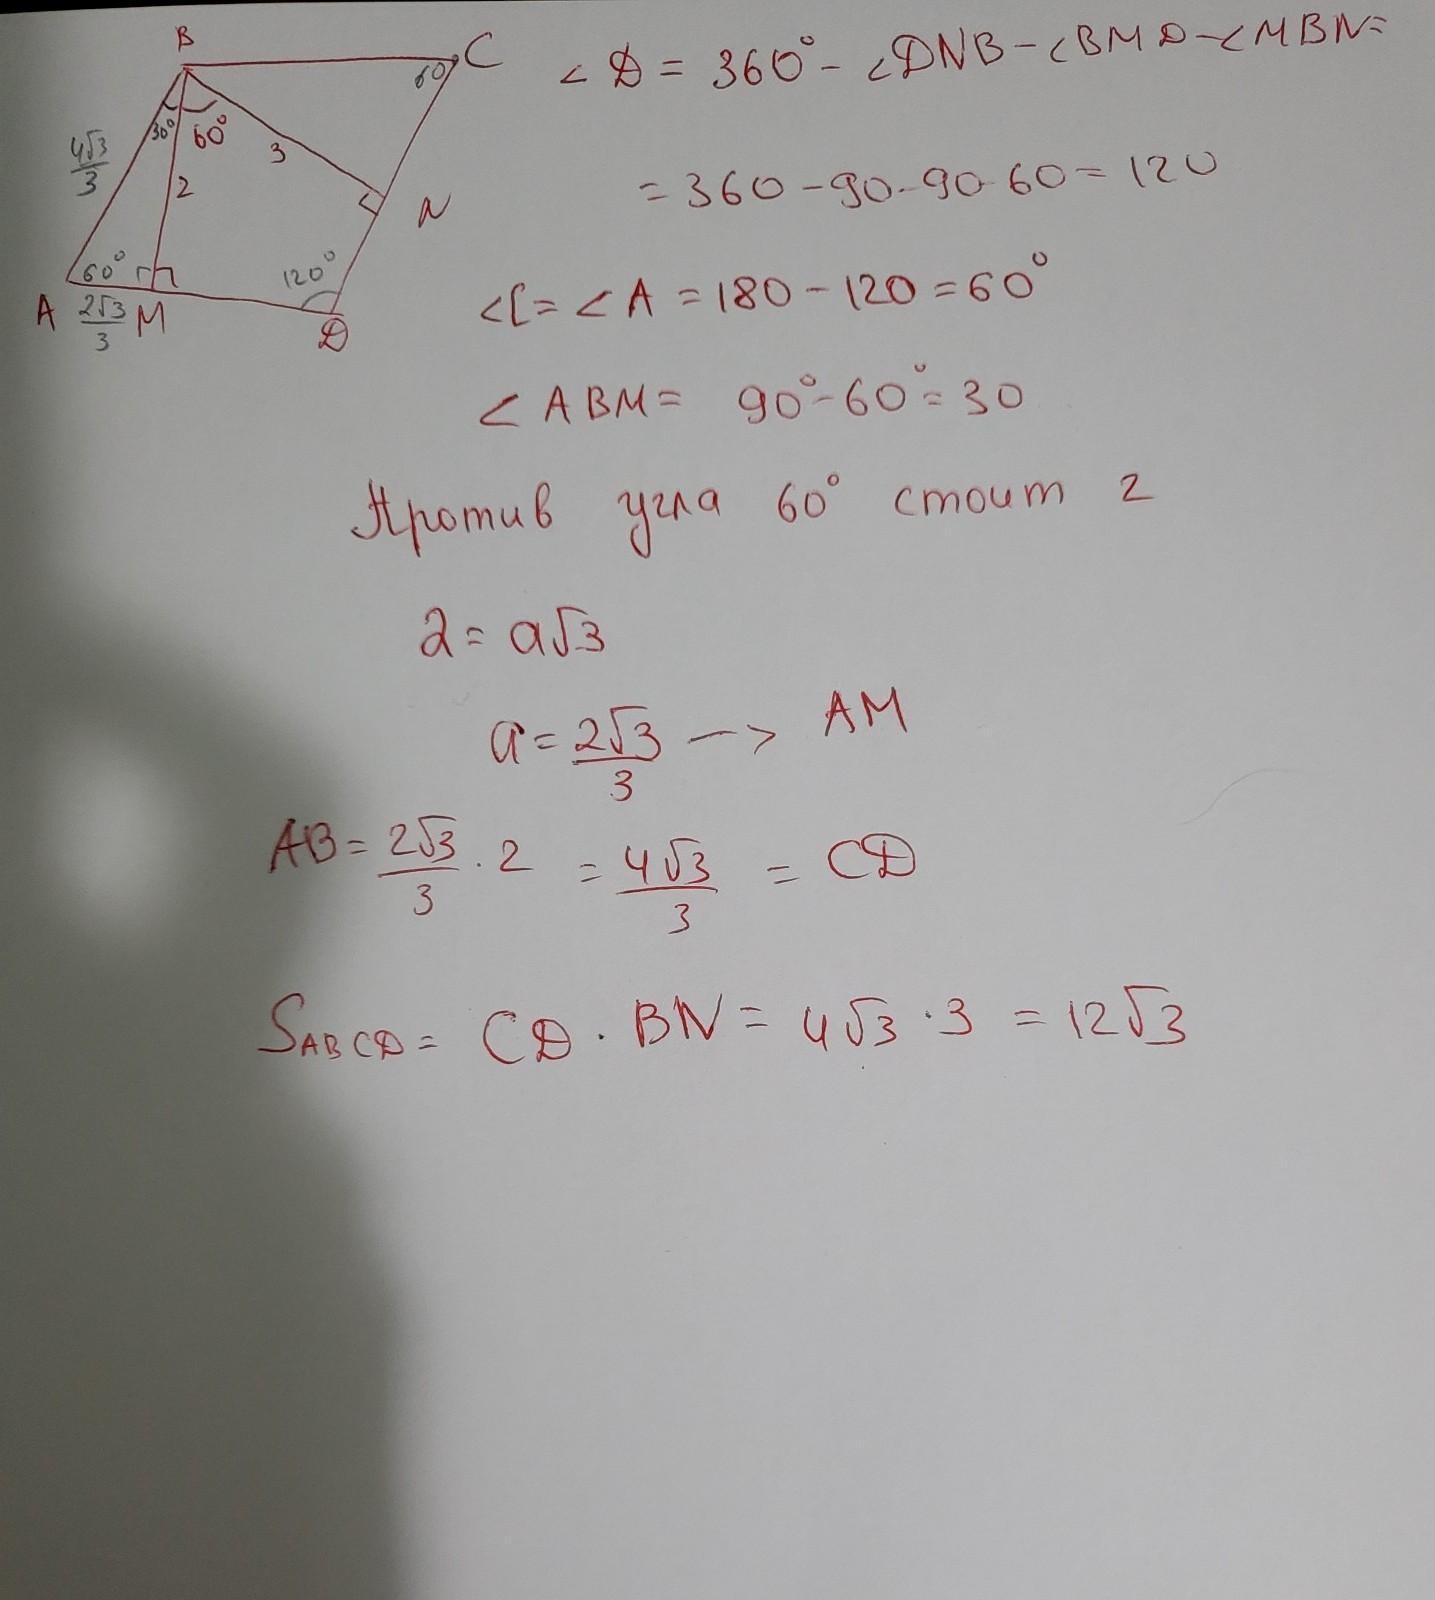 B
C
60
30°
60°
3
4√3
3
2
N
60°
120°
A
2√3
3
M
D
∠D = 360° - ∠DNB - ∠BMD - ∠MBN =
= 360 - 90 - 90 - 60 = 120
∠C = ∠A = 180 - 120 = 60°
∠ABM = 90° - 60° = 30
Против угла 60° стоит 2
2 = a√3
a = 2√3/3 -> AM
AB = 2√3/3 · 2 = 4√3/3 = CD
SABCD = CD · BN = 4√3 · 3 = 12√3